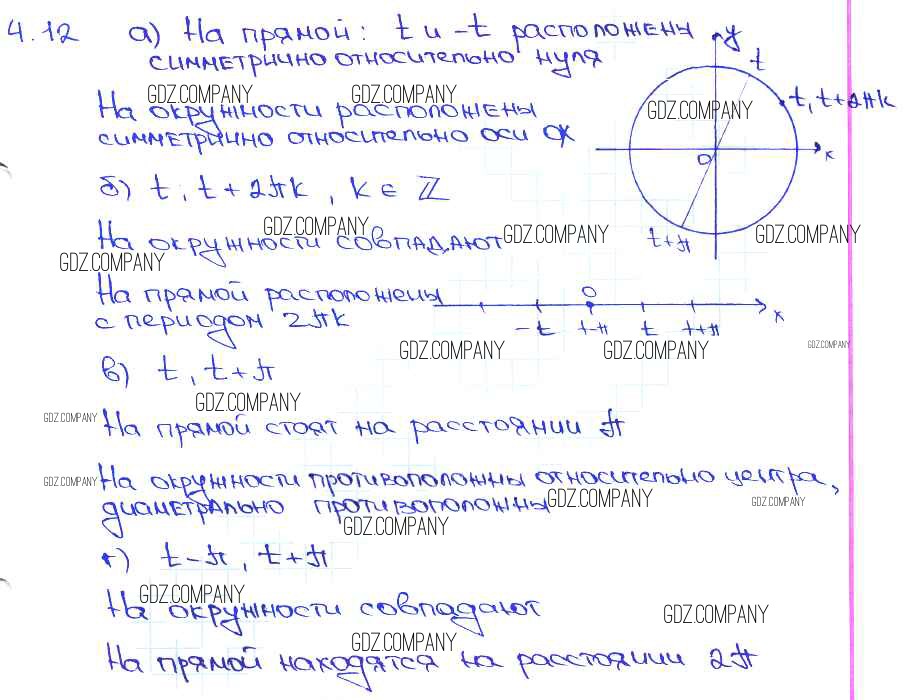 4.12 а) На прямой: t и -t расположены
симметрично относительно нуля
GDZ.COMPANY GDZ.COMPANY
На окружности расположены
симметрично относительно оси OX
y
t
t, t+2πk
GDZ.COMPANY
O
x
t+π
б) t, t+2πk, k ∈ ℤ
GDZ.COMPANY
На окружности совпадают
GDZ.COMPANY GDZ.COMPANY
GDZ.COMPANY
На прямой расположены
с периодом 2πk
O
x
-t t-π t t+π
GDZ.COMPANY GDZ.COMPANY GDZ.COMPANY
в) t, t+π
GDZ.COMPANY
GDZ.COMPANY
На прямой стоят на расстоянии π
GDZ.COMPANY
На окружности противоположны относительно центра,
диаметрально противоположны
GDZ.COMPANY GDZ.COMPANY
GDZ.COMPANY
г) t-π, t+π
GDZ.COMPANY
На окружности совпадают
GDZ.COMPANY
GDZ.COMPANY
На прямой находятся на расстоянии 2π